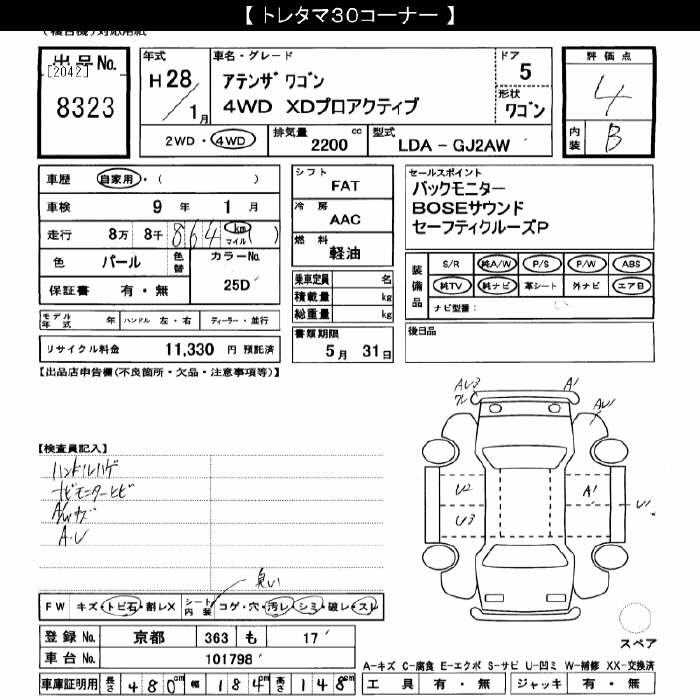 【 トレタマ30コーナー 】
(複合機)対応用紙
出品No. [2042]
8323
年式 H28/1月
車名・グレード
アテンザ ワゴン
4WD XDプロアクティブ
ドア 5
形状 ワゴン
評価点 4
内装 B
2WD・4WD 排気量 2200 cc 型式 LDA - GJ2AW
車歴 自家用・( )
車検 9 年 1 月
走行 8万 8千 864 km マイル )
色 パール 色替 カラーNo. 25D
保証書 有・無
モデル年式 年 ハンドル 左・右 ディーラー・並行
リサイクル料金 11,330 円 預託済
シフト FAT
冷房 AAC
燃料 軽油
乗車定員 名
積載量 kg
総重量 kg
書類期限
5月 31日
セールスポイント
バックモニター
BOSEサウンド
セーフティクルーズP
装備品 S/R 純A/W P/S P/W ABS
純TV 純ナビ 革シート 外ナビ エアB
ナビ型番:
後日品
【出品店申告欄(不良箇所・欠品・注意事項等)】
【検査員記入】
ハンドルハゲ
ナビモニターヒビ
A/Wキズ
A・U
AU3 A1 AU1
U2 A1 U1
U3
臭い
FW キズ・トビ石・割レX シート内装 コゲ・穴・汚レ・シミ・破レ・スレ
登録No. 京都 363 も 17
車台No. 101798
車庫証明用 長さ 480cm 幅 184cm 高さ 148cm
スペア
A-キズ C-腐食 E-エクボ S-サビ U-凹ミ W-補修 XX-交換済
工具 有・無 ジャッキ 有・無